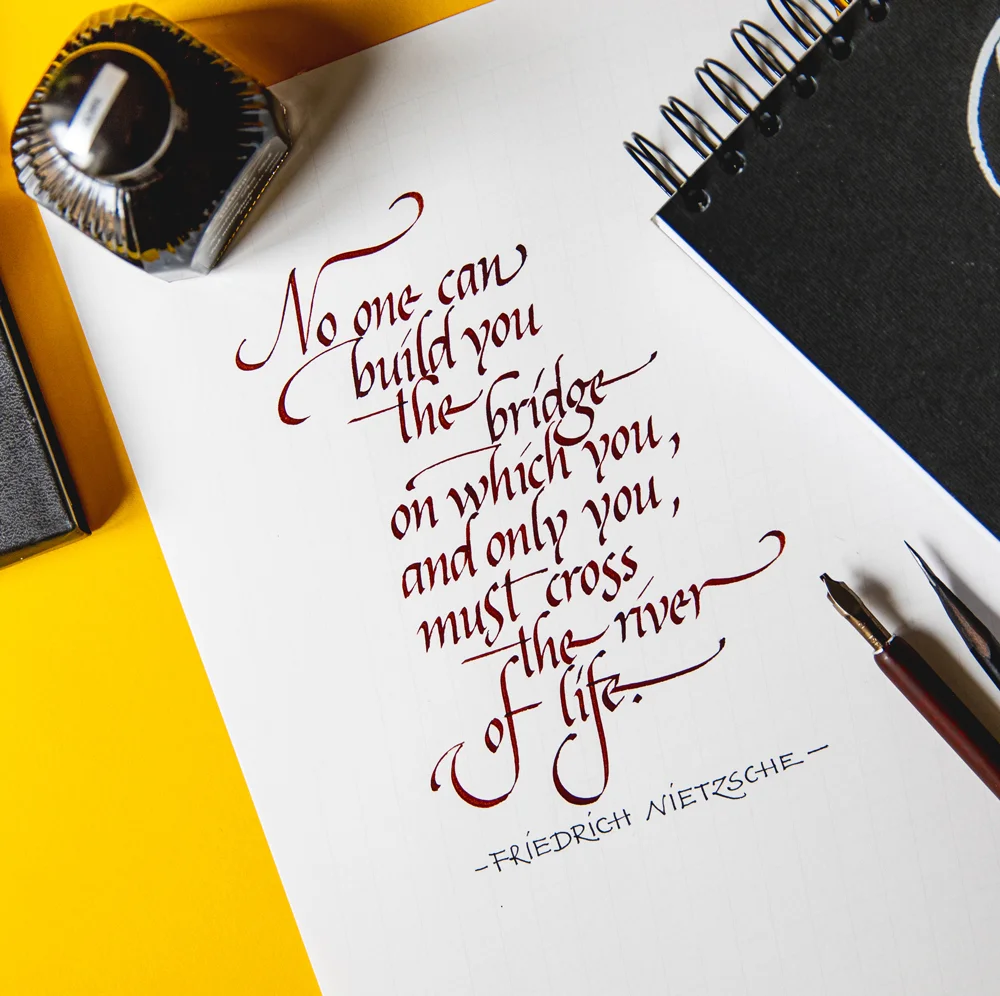 No one can
build you
the bridge
on which you,
and only you,
must cross
the river
of life.
-FRIEDRICH NIETZSCHE-